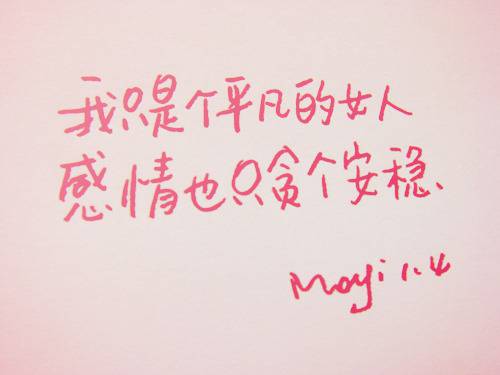 我只是个平凡的女人
感情也只贪个安稳、
Moyi 1.4